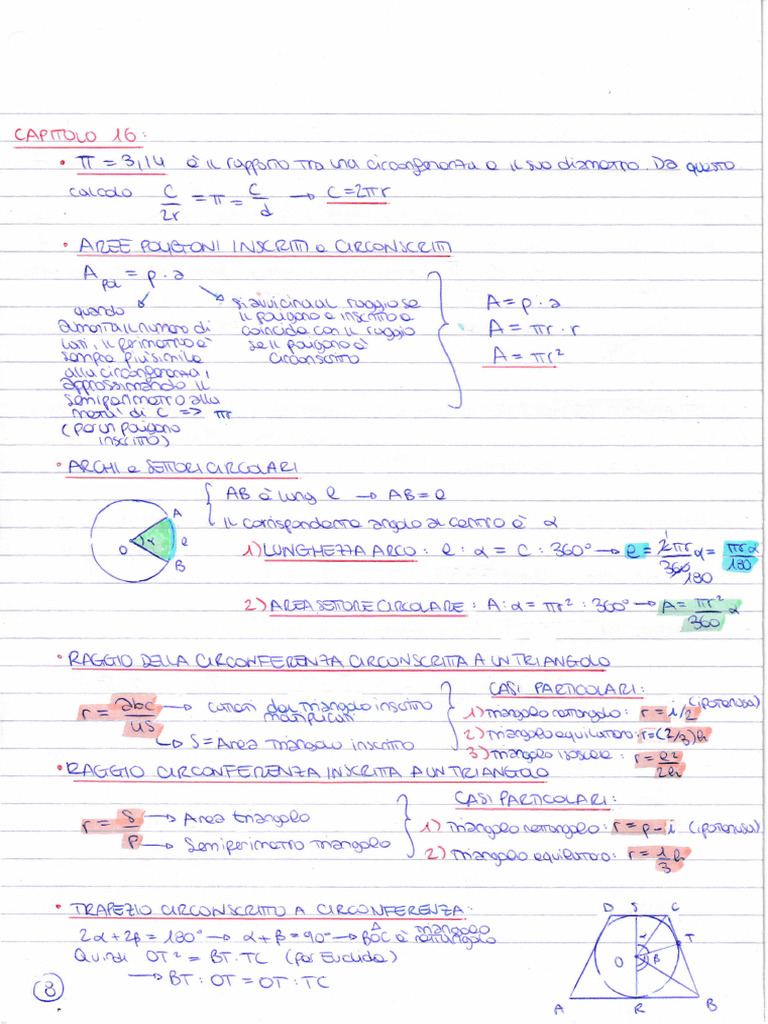 CAPITOLO 16:
• π = 3,14 è il rapporto tra una circonferenza e il suo diametro. Da questo
calcolo C/2r = π = C/d → C = 2πr
• AREE POLIGONI INSCRITTI e CIRCONSCRITTI
A pol = p · a
quando
aumenta il numero di
lati, il perimetro è
sempre più simile
alla circonferenza,
approssimando il
semiperimetro alla
metà di C => πr
(per un poligono
inscritto)
si avvicina al raggio se
il poligono è inscritto e
coincide con il raggio
se il poligono è
circoscritto
A = p · a
A = πr · r
A = πr²
• ARCHI e SETTORI CIRCOLARI
AB è lung l → AB = l
il corrispondente angolo al centro è α
A
O
α
l
B
1) LUNGHEZZA ARCO: l : α = C : 360° → l = 2πr/360 α = πrα/180
1
180
2) AREA SETTORE CIRCOLARE: A : α = πr² : 360° → A = πr²/360 α
• RAGGIO DELLA CIRCONFERENZA CIRCONSCRITTA A UN TRIANGOLO
r = abc/4S → cateti del triangolo inscritto
moltiplicati
→ S = Area triangolo inscritto
CASI PARTICOLARI:
1) triangolo rettangolo: r = i/2 (ipotenusa)
2) triangolo equilatero: r = (2/3)h
3) triangolo isoscele: r = l²/2h
• RAGGIO CIRCONFERENZA INSCRITTA A UN TRIANGOLO
r = S/p → Area triangolo
→ Semiperimetro triangolo
CASI PARTICOLARI:
1) triangolo rettangolo: r = p - i (ipotenusa)
2) triangolo equilatero: r = 1/3 h
• TRAPEZIO CIRCONSCRITTO A CIRCONFERENZA:
2α + 2β = 180° → α + β = 90° → BÔC è triangolo
rettangolo
Quindi OT² = BT · TC (per Euclide)
→ BT : OT = OT : TC
D S C
T
α
O β
A R B
8